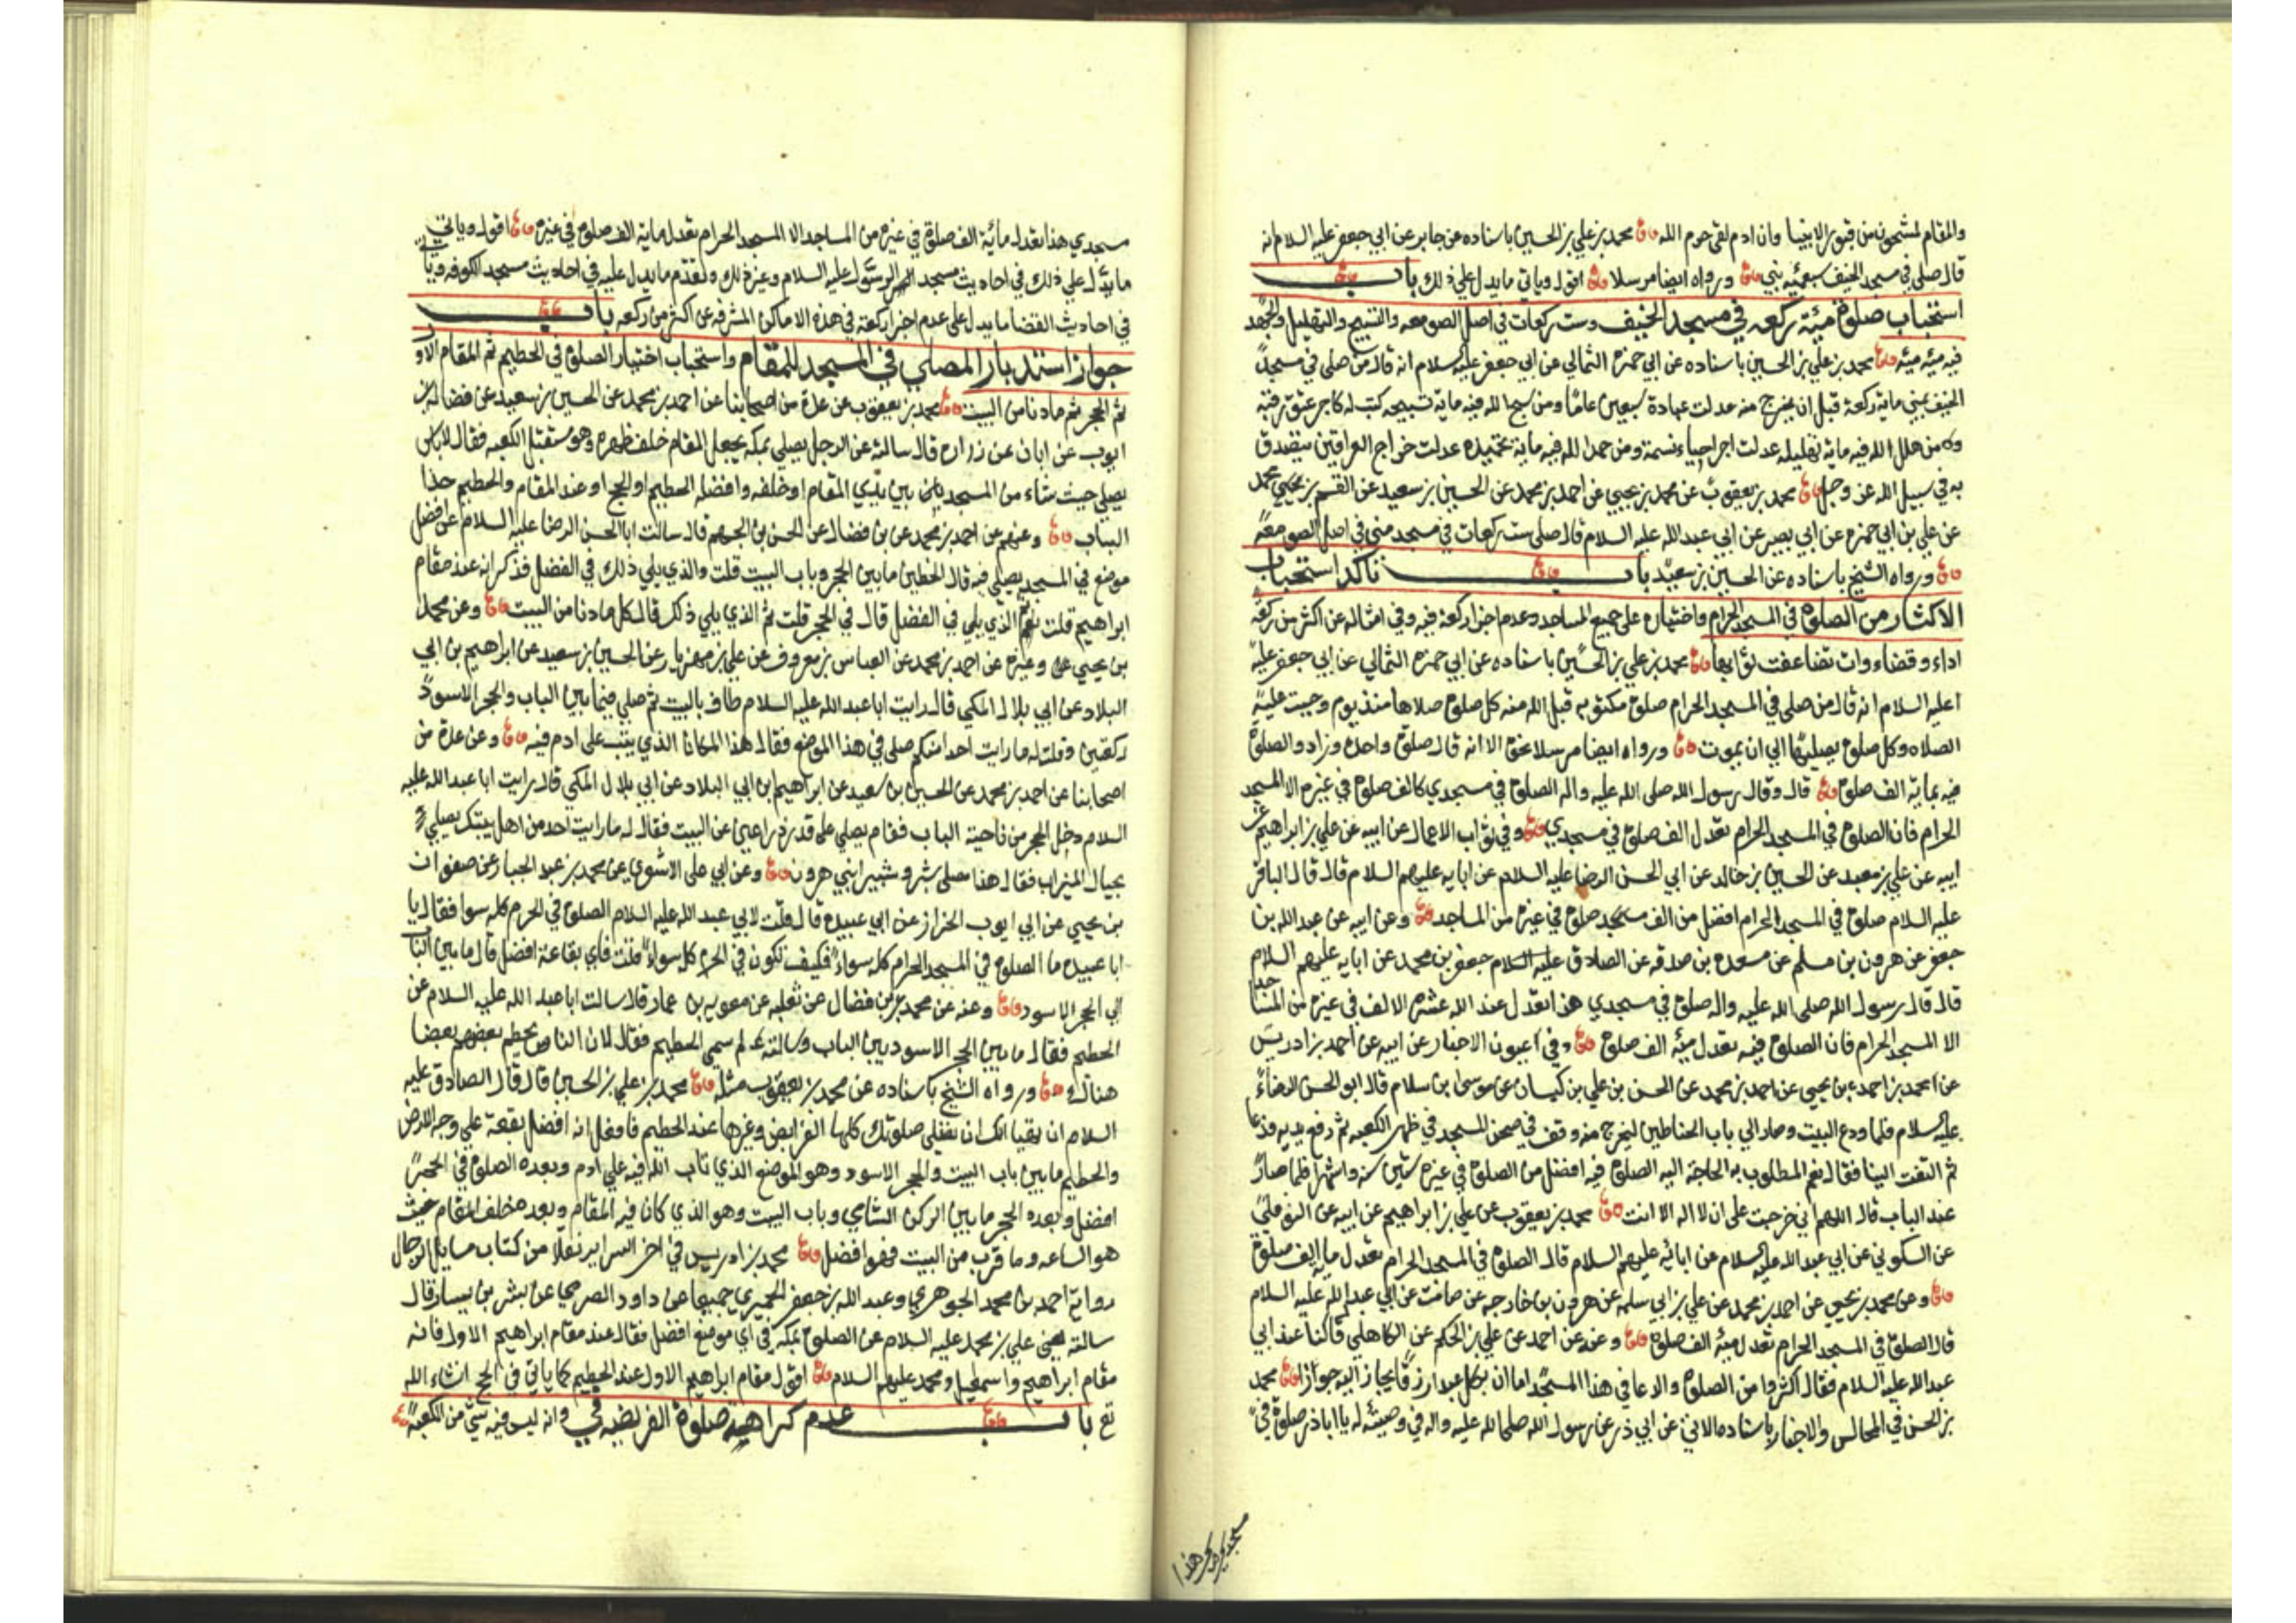 والمقام لمشحون من قبور الانبيا وان ادم لفي حرم الله محمد بن علي بن الحسين باسناده عن جابر عن ابي جعفر عليه السلام انه
قال صلى في مسجد الخيف سبعمئه نبي ورواه ايضا مرسلا اقول وياتي ما يدل علي ذلك باب
استحباب صلوة مئة ركعه في مسجد الخيف وست ركعات في اصل الصومعه والتسبيح والتهليل والحمد
فيه مئه مئه محمد بن علي بن الحسين باسناده عن ابي حمزه الثمالي عن ابي جعفر عليه السلام انه قال من صلى في مسجد
الخيف بمنى ماية ركعة قبل ان يخرج منه عدلت عبادة سبعين عاما ومن سبح الله فيه ماية تسبيحه كتب له كاجر عتق رقبة
ومن هلل الله فيه ماية تهليله عدلت اجر احياء نسمة ومن حمد الله فيه ماية تحميده عدلت خراج العراقين يتصدق
به في سبيل الله عز وجل محمد بن يعقوب عن محمد بن يحيي عن احمد بن محمد عن الحسين بن سعيد عن القسم بن محمد
عن علي بن ابي حمزه عن ابي بصير عن ابي عبد الله عليه السلام قال صلى ست ركعات في مسجد منى في اصل الصومعة
ورواه الشيخ باسناده عن الحسين بن سعيد باب تاكد استحباب
الاكثار من الصلوة في المسجد الحرام واختياره على جميع المساجد وعدم اجزا ركعة فيه وفي امثاله عن اكثر من ركعة
اداء وقضاء وان تضاعف ثوابها محمد بن علي بن الحسين باسناده عن ابي حمزه الثمالي عن ابي جعفر عليه
عليه السلام انه قال من صلى في المسجد الحرام صلوة مكتوبه قبل الله منه كل صلوة صلاها منذ يوم وجبت عليه
الصلاه وكل صلوة يصليها الي ان يموت ورواه ايضا مرسلا نحوه الا انه قال صلوة واحدة وزاد والصلوة
فيه بماية الف صلوة قال وقال رسول الله صلى الله عليه واله الصلوة في مسجدي كالف صلوة في غيره الا المسجد
الحرام فان الصلوة في المسجد الحرام تعدل الف صلوة في مسجدي وفي ثواب الاعمال عن ابيه عن علي بن ابراهيم عن
ابيه عن علي بن معبد عن الحسين بن خالد عن ابي الحسن الرضا عليه السلام عن ابايه عليهم السلام قال قال الباقر
عليه السلام صلوة في المسجد الحرام افضل من الف صلوة في غيره من المساجد وعن ابيه عن عبد الله بن
جعفر عن هرون بن مسلم عن مسعده بن صدقه عن الصادق عليه السلام جعفر بن محمد عن ابايه عليهم السلام
قال قال رسول الله صلى الله عليه واله صلوة في مسجدي هذا تعدل عند الله عشرة الالف في غيره من المساجد
الا المسجد الحرام فان الصلوة فيه تعدل مئة الف صلوة وفي عيون الاخبار عن ابيه عن احمد بن ادريس
عن احمد بن يحيي عن احمد بن محمد عن الحسن بن علي بن كيسان عن موسى بن سلام قال ابو الحسن الرضاء
عليه السلام فلما ودع البيت وصار الي باب الحناطين ليخرج منه وقف في صحن المسجد في ظهر الكعبه ثم رفع يديه فدعا
ثم التفت الينا فقال نعم المطلوب به الحاجة اليه الصلوة فيه افضل من الصلوة في غيره ستين سنه واشهرا فلما صار
عند الباب قال اللهم اني خرجت على ان لا اله الا انت محمد بن يعقوب عن علي بن ابراهيم عن ابيه عن النوفلي
عن السكوني عن ابي عبد الله عليه السلام عن ابائه عليهم السلام قال الصلوة في المسجد الحرام تعدل ماية الف صلوة
وعن محمد بن يحيي عن احمد بن محمد عن علي بن ابي سلمه عن هرون بن خارجه عن صامت عن ابي عبد الله عليه السلام
قال الصلوة في المسجد الحرام تعدل مئة الف صلوة وعنه عن احمد عن علي بن الحكم عن الكاهلي قال كنا عند ابي
عبد الله عليه السلام فقال اكثروا من الصلوة والدعا في هذا المسجد اما ان لكل عبد رزقا يجاز اليه جوازا محمد
بن الحسن في المجالس والاخبار باسناده الاتي عن ابي ذر عن رسول الله صلى الله عليه واله في وصيته له يا ابا ذر صلوة في
مسجدي هذا
مسجدي هذا تعدل مائة الف صلوة في غيره من المساجد الا المسجد الحرام تعدل ماية الف صلوة في غيره اقول وياتي
ما يدل علي ذلك في احاديث مسجد الرسول عليه السلام وغير ذلك وتقدم ما يدل عليه في احاديث مسجد الكوفه وياتي
في احاديث القضا ما يدل على عدم اجزا ركعة في هذه الاماكن المشرفه عن اكثر من ركعه باب
جواز استدبار المصلي في المسجد للمقام واستحباب اختيار الصلوة في الحطيم ثم المقام الاول
ثم الحجر ثم ما دنا من البيت محمد بن يعقوب عن عدة من اصحابنا عن احمد بن محمد عن الحسين بن سعيد عن فضاله بن
ايوب عن ابان عن زراره قال سالته عن الرجل يصلي بمكه يجعل المقام خلف ظهره وهو مستقبل الكعبه فقال لا باس
يصلي حيث شاء من المسجد بين يدي المقام او خلفه وافضله الحطيم او الحجر او عند المقام والحطيم حذا
الباب وعنهم عن احمد بن محمد عن بن فضال عن الحسن بن الجهم قال سالت ابا الحسن الرضا عليه السلام عن افضل
موضع في المسجد يصلي فيه قال الحطيم ما بين الحجر وباب البيت قلت والذي يلي ذلك في الفضل فذكر انه عند مقام
ابراهيم قلت ثم الذي يلي في الفضل قال في الحجر قلت ثم الذي يلي ذلك قال كل ما دنا من البيت وعن محمد
بن يحيي وغيره عن احمد بن محمد عن العباس بن معروف عن علي بن مهزيار عن الحسين بن سعيد عن ابراهيم بن ابي
البلاد عن ابي بلال المكي قال رايت ابا عبد الله عليه السلام طاف بالبيت ثم صلي فيما بين الباب والحجر الاسود
ركعتين وقلت له ما رايت احدا منكم صلى في هذا الموضع فقال هذا المكان الذي يتب على ادم فيه وعن عدة من
اصحابنا عن احمد بن محمد عن الحسين بن سعيد عن ابراهيم بن ابي البلاد عن ابي بلال المكي قال رايت ابا عبد الله عليه
السلام دخل الحجر من ناحية الباب فقام يصلي على قدر ذراعين عن البيت فقال له ما رايت احد من اهل بيتك يصلي
بحيال الميزاب فقال هذا مصلى شبر وشبير ابني هرون وعن ابي على الاشعري عن محمد بن عبد الجبار عن صفوان
بن يحيي عن ابي ايوب الخزاز عن ابي عبيده قال قلت لابي عبد الله عليه السلام الصلوة في الحرم كله سوا فقال يا
ابا عبيده ما الصلوة في المسجد الحرام كله سواء فكيف تكون في الحرم كل سواء قلت فاي بقاعه افضل قال ما بين الباب
الي الحجر الاسود وعنه عن محمد بن فضال عن ثعلبه عن معويه بن عمار قال سالت ابا عبد الله عليه السلام عن
الحطيم فقال ما بين الحجر الاسود وبين الباب وسالته لم سمي الحطيم فقال لان الناس يحطم بعضهم بعضا
هناك ورواه الشيخ باسناده عن محمد بن يعقوب مثله محمد بن علي بن الحسين قال قال الصادق عليه
السلام ان تهيا لك ان تصلي صلوتك كلها الفرايض وغيرها عند الحطيم فافعل انه افضل بقعة علي وجه الارض
والحطيم ما بين باب البيت والحجر الاسود وهو الموضع الذي تاب الله فيه علي ادم وبعده الصلوة في الحجر
افضل وبعده الحجر ما بين الركن الشامي وباب البيت وهو الذي كان فيه المقام وبعده خلف المقام حيث
هو الساعه وما قرب من البيت فهو افضل محمد بن ادريس في اخر السراير نقلا من كتاب مسايل الرجال
رواية احمد بن محمد الجوهري وعبد الله بن جعفر الحميري جميعا عن داود الصرمي عن بشر بن يسار قال
سالته يعني علي بن محمد عليه السلام عن الصلوة بمكه في اي موضع افضل فقال عند مقام ابراهيم الاول فانه
مقام ابراهيم واسمعيل ومحمد عليهم السلام اقول مقام ابراهيم الاول عند الحطيم كما ياتي في الحج انشاء الله
تع باب عدم كراهية صلوة الفريضه في وانه ليس فيه شي من الكعبه